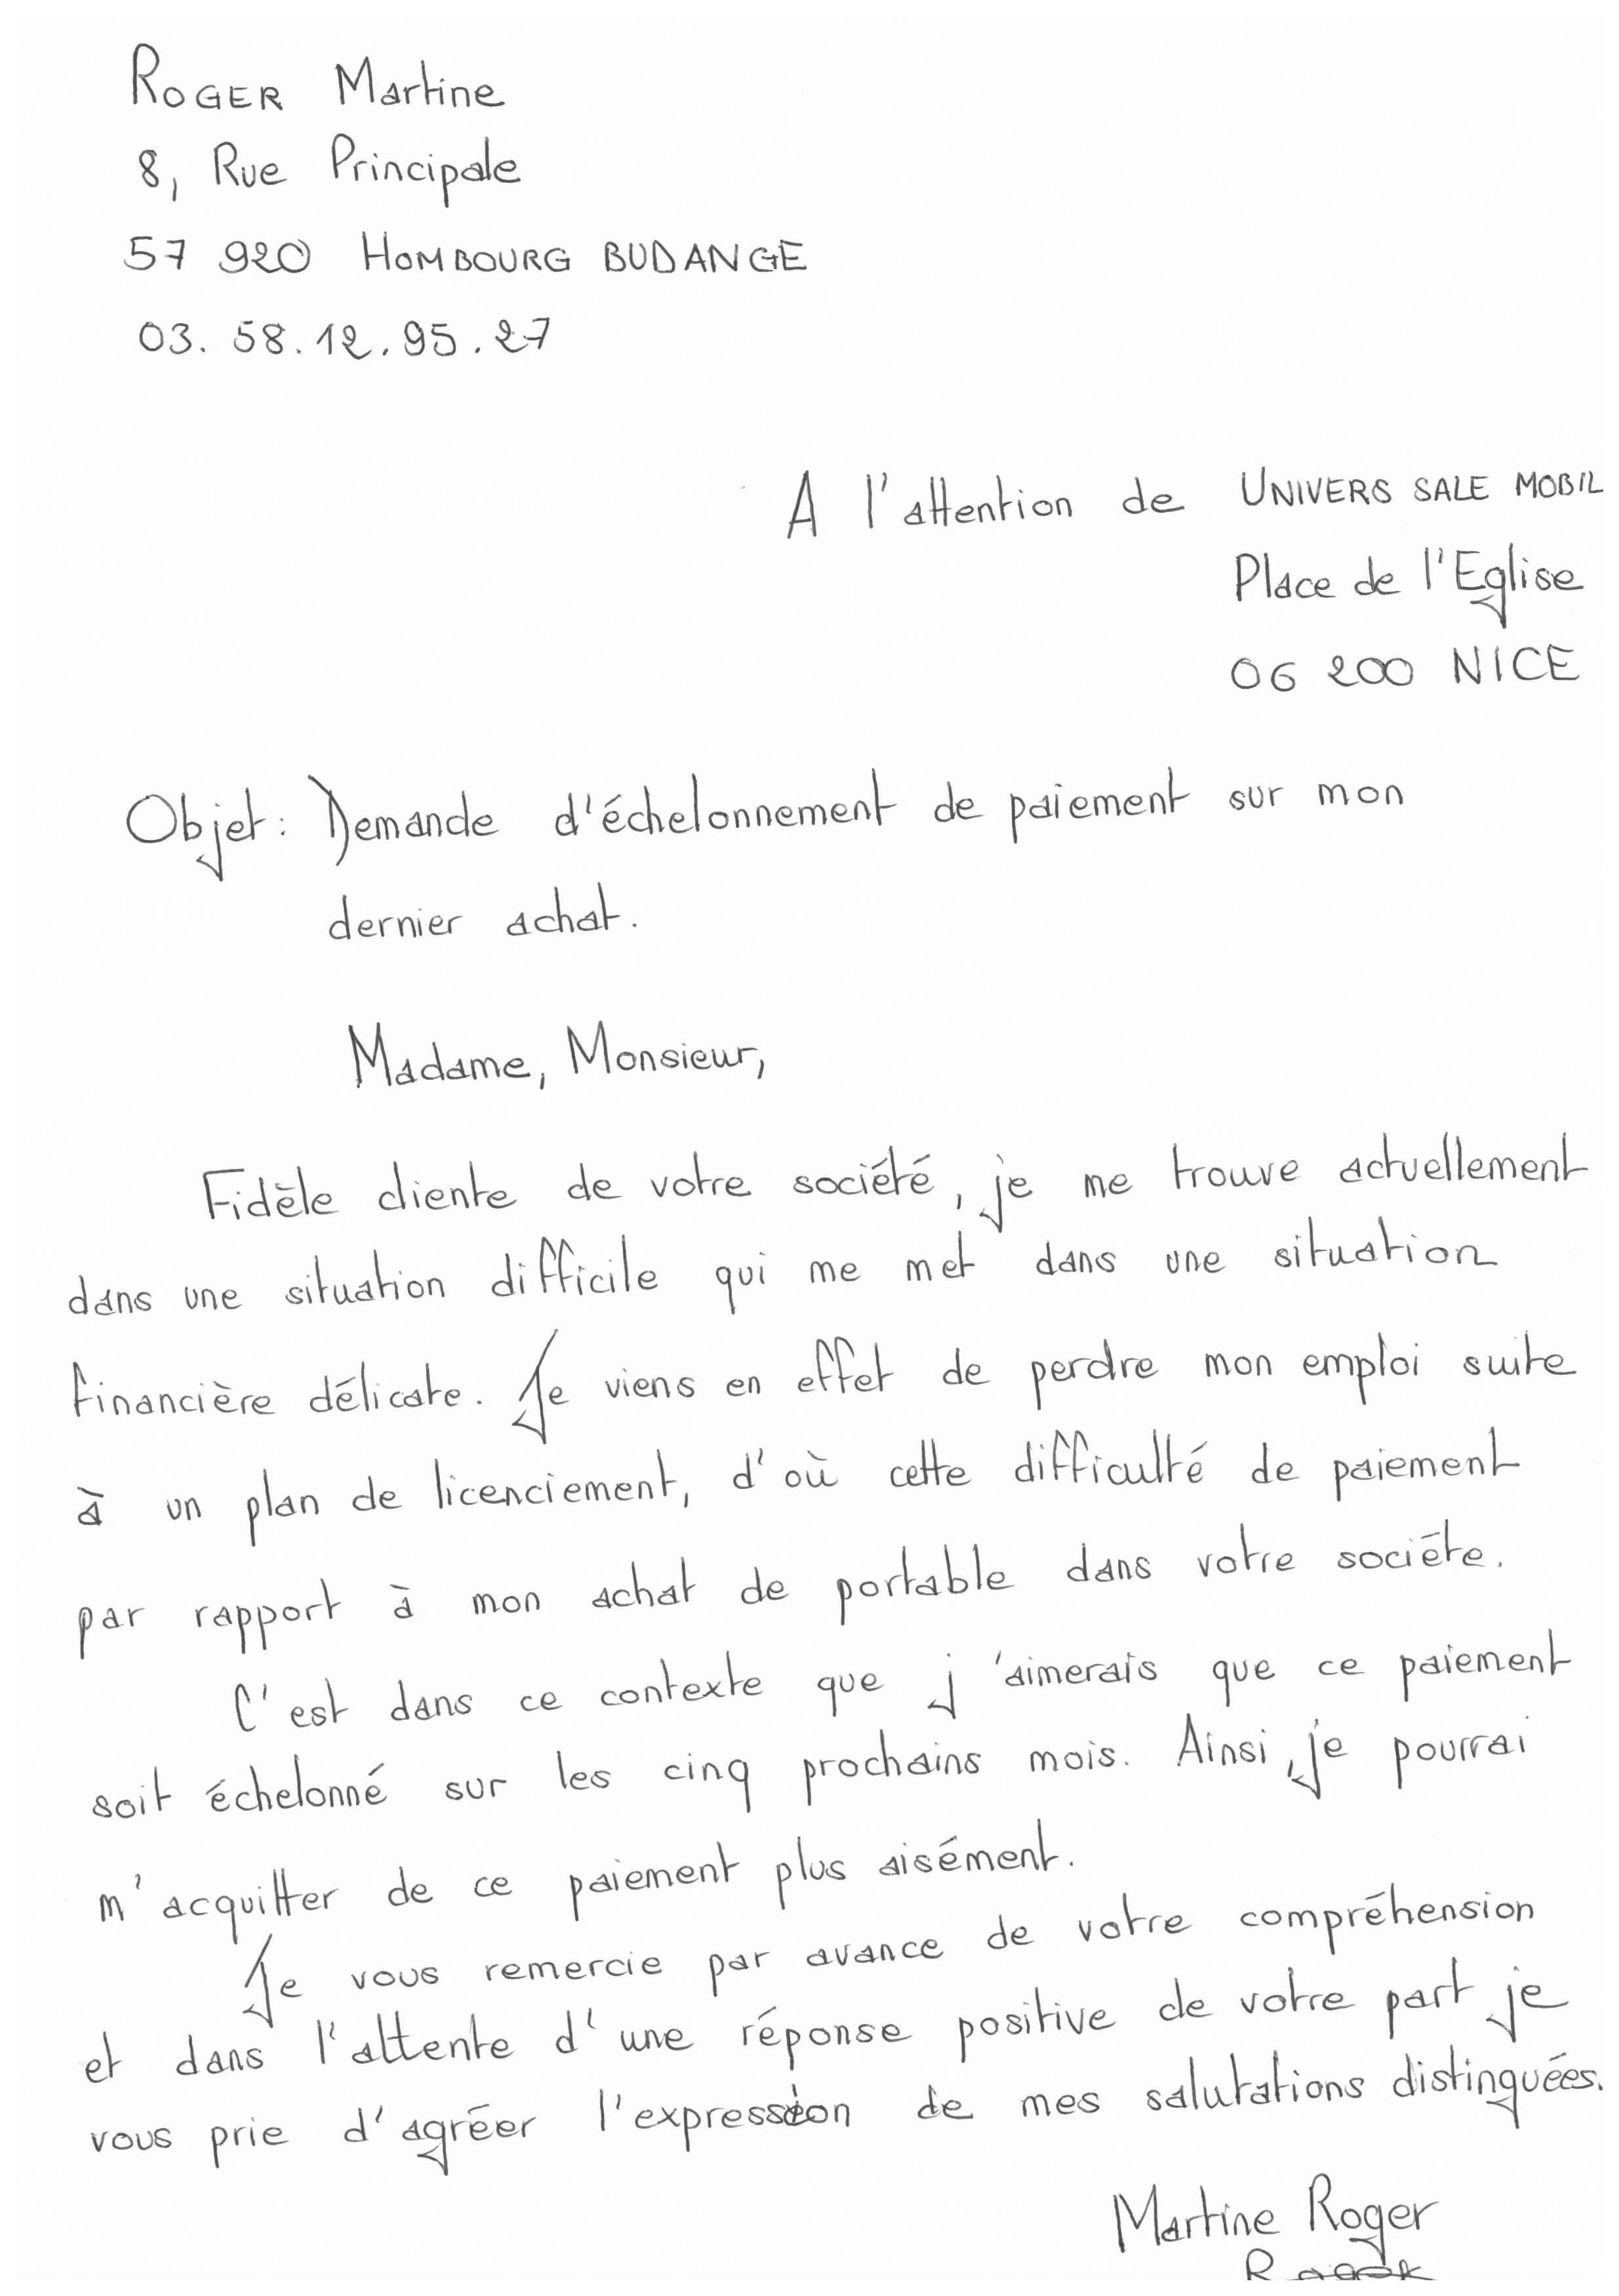 ROGER Martine
8, Rue Principale
57 920 HOMBOURG BUDANGE
03. 58. 12. 95. 27
A l'attention de UNIVERS SALE MOBIL
Place de l'Eglise
06 200 NICE
Objet : Demande d'échelonnement de paiement sur mon
dernier achat.
Madame, Monsieur,
Fidèle cliente de votre société, je me trouve actuellement
dans une situation difficile qui me met dans une situation
financière délicate. Je viens en effet de perdre mon emploi suite
à un plan de licenciement, d'où cette difficulté de paiement
par rapport à mon achat de portable dans votre société.
C'est dans ce contexte que j'aimerais que ce paiement
soit échelonné sur les cinq prochains mois. Ainsi, je pourrai
m'acquitter de ce paiement plus aisément.
Je vous remercie par avance de votre compréhension
et dans l'attente d'une réponse positive de votre part je
vous prie d'agréer l'expression de mes salutations distinguées.
Martine Roger